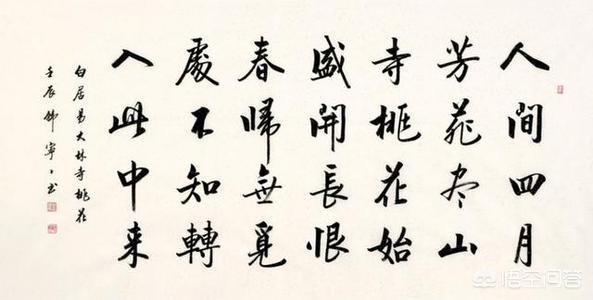 人間四月
芳菲尽山
寺桃花始
盛開長恨
春歸無覓
處不知轉
入此中来
白居易大林寺桃花
壬辰 寧寧书
悟空问答